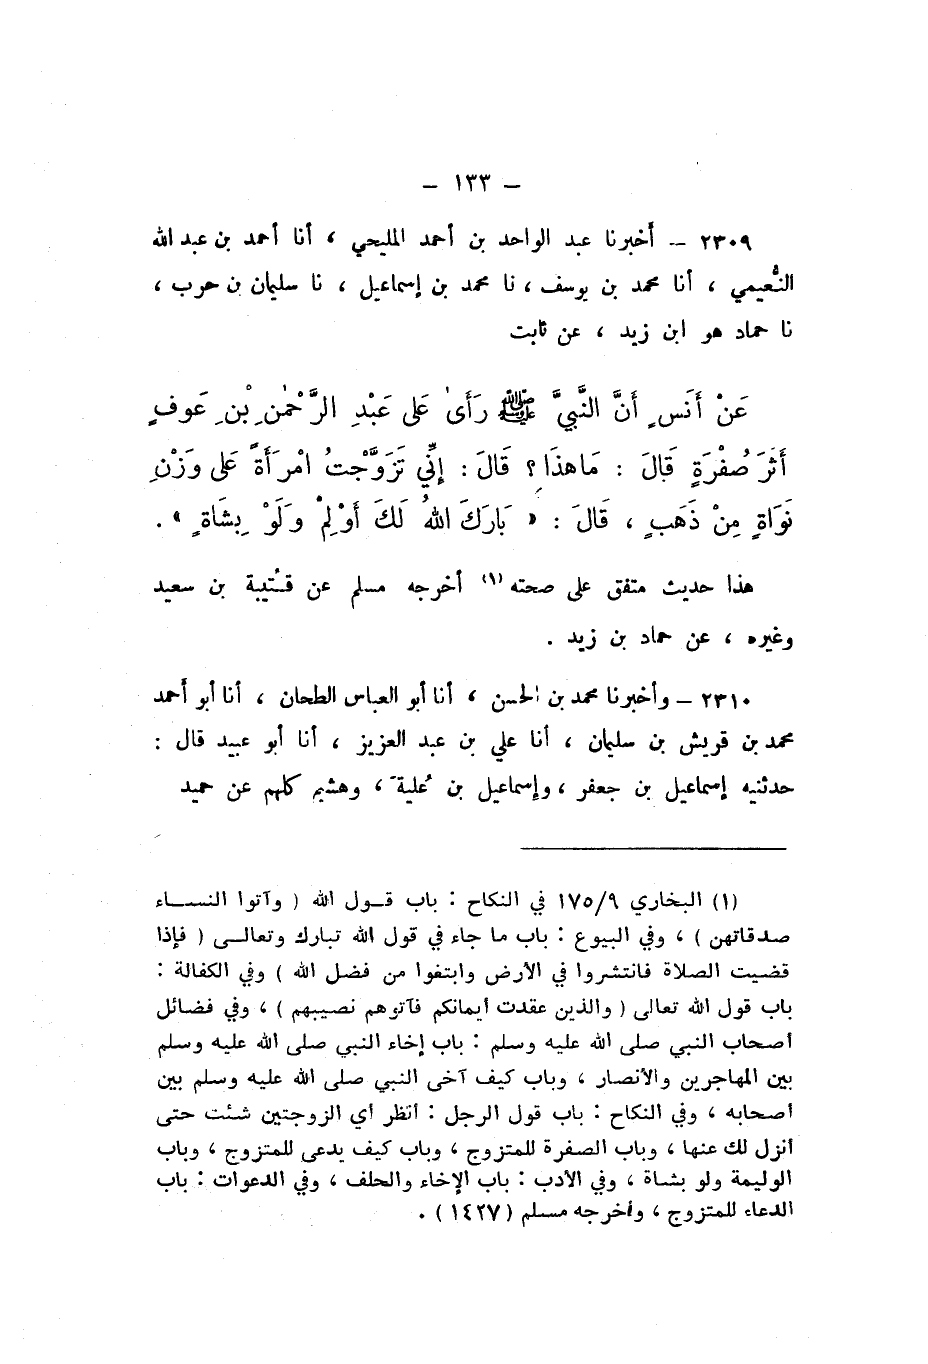 – ١٣٣ –
٢٣٠٩ – أخبرنا عبد الواحد بن أحمد المليحي ، أنا أحمد بن عبد الله
النُّعيمي ، أنا محمد بن يوسف ، نا محمد بن إسماعيل ، نا سليمان بن حرب ،
نا حماد هو ابن زيد ، عن ثابت
عَنْ أَنَسٍ أَنَّ النَّبِيَّ ﷺ رَأَىٰ عَلَى عَبْدِ الرَّحْمٰنِ بْنِ عَوفٍ
أَثَرَ صُفْرَةٍ قَالَ : مَاهذَا ؟ قَالَ : إِنِّي تَزَوَّجْتُ امْرَأَةً عَلَى وَزْنِ
نَوَاةٍ مِنْ ذَهَبٍ ، قَالَ : « بَارَكَ اللهُ لَكَ أَوْلِمْ وَلَوْ بِشَاةٍ » .
هذا حديث متفق على صحته (١) أخرجه مسلم عن قتُيبة بن سعيد
وغيره ، عن حماد بن زيد .
٢٣١٠ – وأخبرنا محمد بن الحسن ، أنا أبو العباس الطحان ، أنا أبو أحمد
محمد بن قريش بن سليمان ، أنا علي بن عبد العزيز ، أنا أبو عبيد قال :
حدثنيه إسماعيل بن جعفر ، وإسماعيل بن عُليةَ ، وهشيم كلهم عن حميد
(١) البخاري ١٧٥/٩ في النكاح : باب قـول الله ( وآتوا النســاء
صدقاتهن ) ، وفي البيوع : باب ما جاء في قول الله تبارك وتعالـى ( فإذا
قضيت الصلاة فانتشروا في الأرض وابتغوا من فضل الله ) وفي الكفالة :
باب قول الله تعالى ( والذين عقدت أيمانكم فآتوهم نصيبهم ) ، وفي فضائل
أصحاب النبي صلى الله عليه وسلم : باب إخاء النبي صلى الله عليه وسلم
بين المهاجرين والأنصار ، وباب كيف آخى النبي صلى الله عليه وسلم بين
أصحابه ، وفي النكاح : باب قول الرجل : انظر أي الزوجتين شئت حتى
أنزل لك عنها ، وباب الصفرة للمتزوج ، وباب كيف يدعى للمتزوج ، وباب
الوليمة ولو بشاة ، وفي الأدب : باب الإخاء والحلف ، وفي الدعوات : باب
الدعاء للمتزوج ، وأخرجه مسلم ( ١٤٢٧ ) .